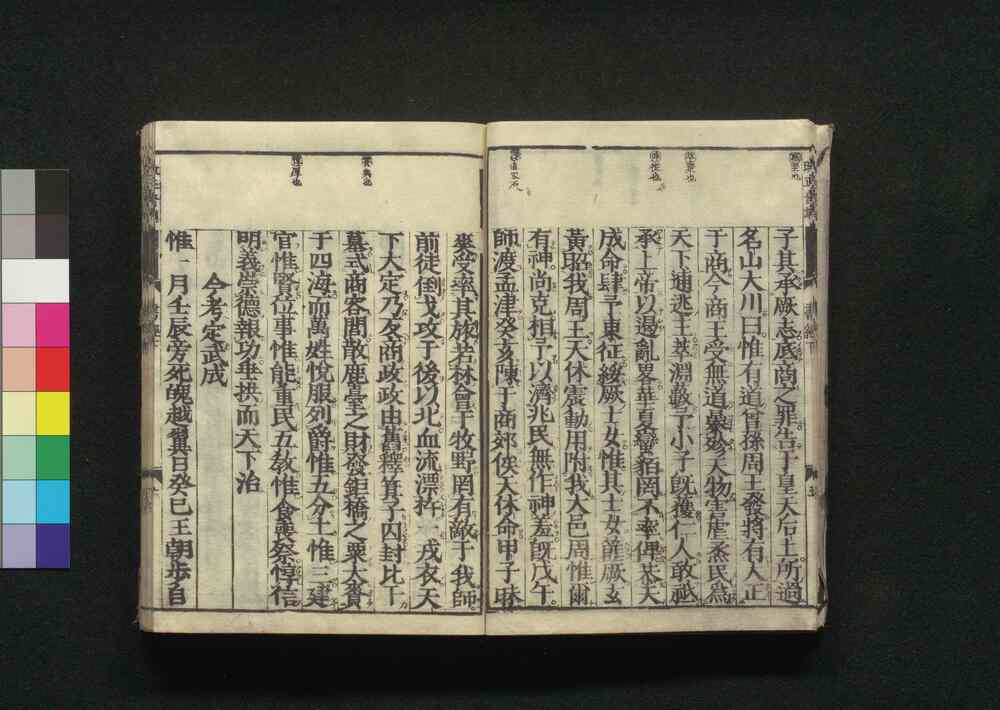 子其承厥志底商之罪告于皇天后土所過
名山大川曰惟有道曾孫周王發將有大正
于商今商王受無道暴殄天物害虐烝民爲
天下逋逃主萃淵藪予小子旣獲仁人敢祗
承上帝以遏亂畧華夏蠻貊罔不率俾恭天
成命肆予東征綏厥士女惟其士女篚厥玄
黃昭我周王天休震動用附我大邑周惟爾
有神尚克相予以濟兆民無作神羞旣戊午
師渡孟津癸亥陳于商郊俟天休命甲子昧
爽受率其旅若林會于牧野罔有敵于我師
前徒倒戈攻于後以北血流漂杵一戎衣天
下大定乃反商政政由舊釋箕子囚封比干
墓式商容閭散鹿臺之財發鉅橋之粟大賚
于四海而萬姓悅服列爵惟五分土惟三建
官惟賢位事惟能重民五敎惟食喪祭惇信
明義崇德報功垂拱而天下治
今考定武成
惟一月壬辰旁死魄越翼日癸巳王朝步自